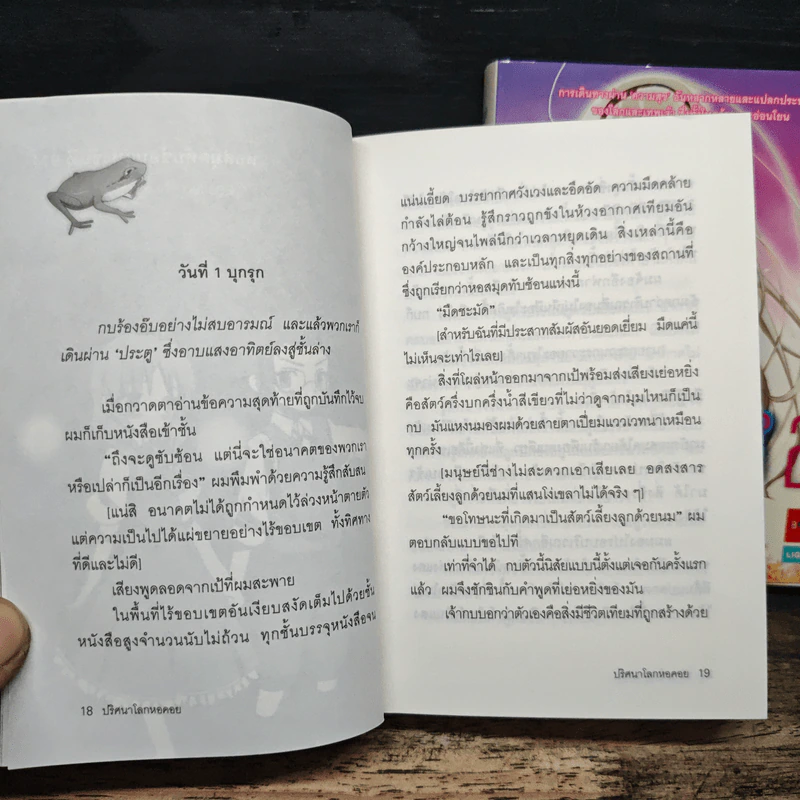 วันที่ 1 บุกรุก
กบร้องอ๊บอย่างไม่สบอารมณ์ และแล้วพวกเราก็
เดินผ่าน ‘ประตู’ ซึ่งอาบแสงอาทิตย์ลงสู่ชั้นล่าง
เมื่อกวาดตาอ่านข้อความสุดท้ายที่ถูกบันทึกไว้จบ
ผมก็เก็บหนังสือเข้าชั้น
“ถึงจะดูซับซ้อน แต่นี่จะใช่อนาคตของพวกเรา
หรือเปล่าก็เป็นอีกเรื่อง” ผมพึมพำด้วยความรู้สึกสับสน
[แน่สิ อนาคตไม่ได้ถูกกำหนดไว้ล่วงหน้าตายตัว
แต่ความเป็นไปได้แผ่ขยายอย่างไร้ขอบเขต ทั้งทิศทาง
ที่ดีและไม่ดี]
เสียงพูดลอดจากเป้ที่ผมสะพาย
ในพื้นที่ไร้ขอบเขตอันเงียบสงัดเต็มไปด้วยชั้น
หนังสือสูงจำนวนนับไม่ถ้วน ทุกชั้นบรรจุหนังสือจน
18 ปริศนาโลกหอคอย
แน่นเอี้ยด บรรยากาศวังเวงและอึดอัด ความมืดคล้าย
กำลังไล่ต้อน รู้สึกราวถูกขังในห้วงอากาศเทียมอัน
กว้างใหญ่จนไพล่นึกว่าเวลาหยุดเดิน สิ่งเหล่านี้คือ
องค์ประกอบหลัก และเป็นทุกสิ่งทุกอย่างของสถานที่
ซึ่งถูกเรียกว่าหอสมุดทับซ้อนแห่งนี้
“มืดชะมัด”
[สำหรับฉันที่มีประสาทสัมผัสอันยอดเยี่ยม มืดแค่นี้
ไม่เห็นจะเท่าไรเลย]
สิ่งที่โผล่หน้าออกมาจากเป้พร้อมส่งเสียงเย่อหยิ่ง
คือสัตว์ครึ่งบกครึ่งน้ำสีเขียวที่ไม่ว่าดูจากมุมไหนก็เป็น
กบ มันแหงนมองผมด้วยสายตาเปี่ยมแววเวทนาเหมือน
ทุกครั้ง
[มนุษย์นี่ช่างไม่สะดวกเอาเสียเลย อดสงสาร
สัตว์เลี้ยงลูกด้วยนมที่แสนโง่เขลาไม่ได้จริง ๆ]
“ขอโทษนะที่เกิดมาเป็นสัตว์เลี้ยงลูกด้วยนม” ผม
ตอบกลับแบบขอไปที
เท่าที่จำได้ กบตัวนี้นิสัยแบบนี้ตั้งแต่เจอกันครั้งแรก
แล้ว ผมจึงชักชินกับคำพูดที่เย่อหยิ่งของมัน
เจ้ากบบอกว่าตัวเองคือสิ่งมีชีวิตเทียมที่ถูกสร้างด้วย
ปริศนาโลกหอคอย 19
การเดินทางผ่าน ‘ความสุข’ อันหลากหลายและแปลกประ